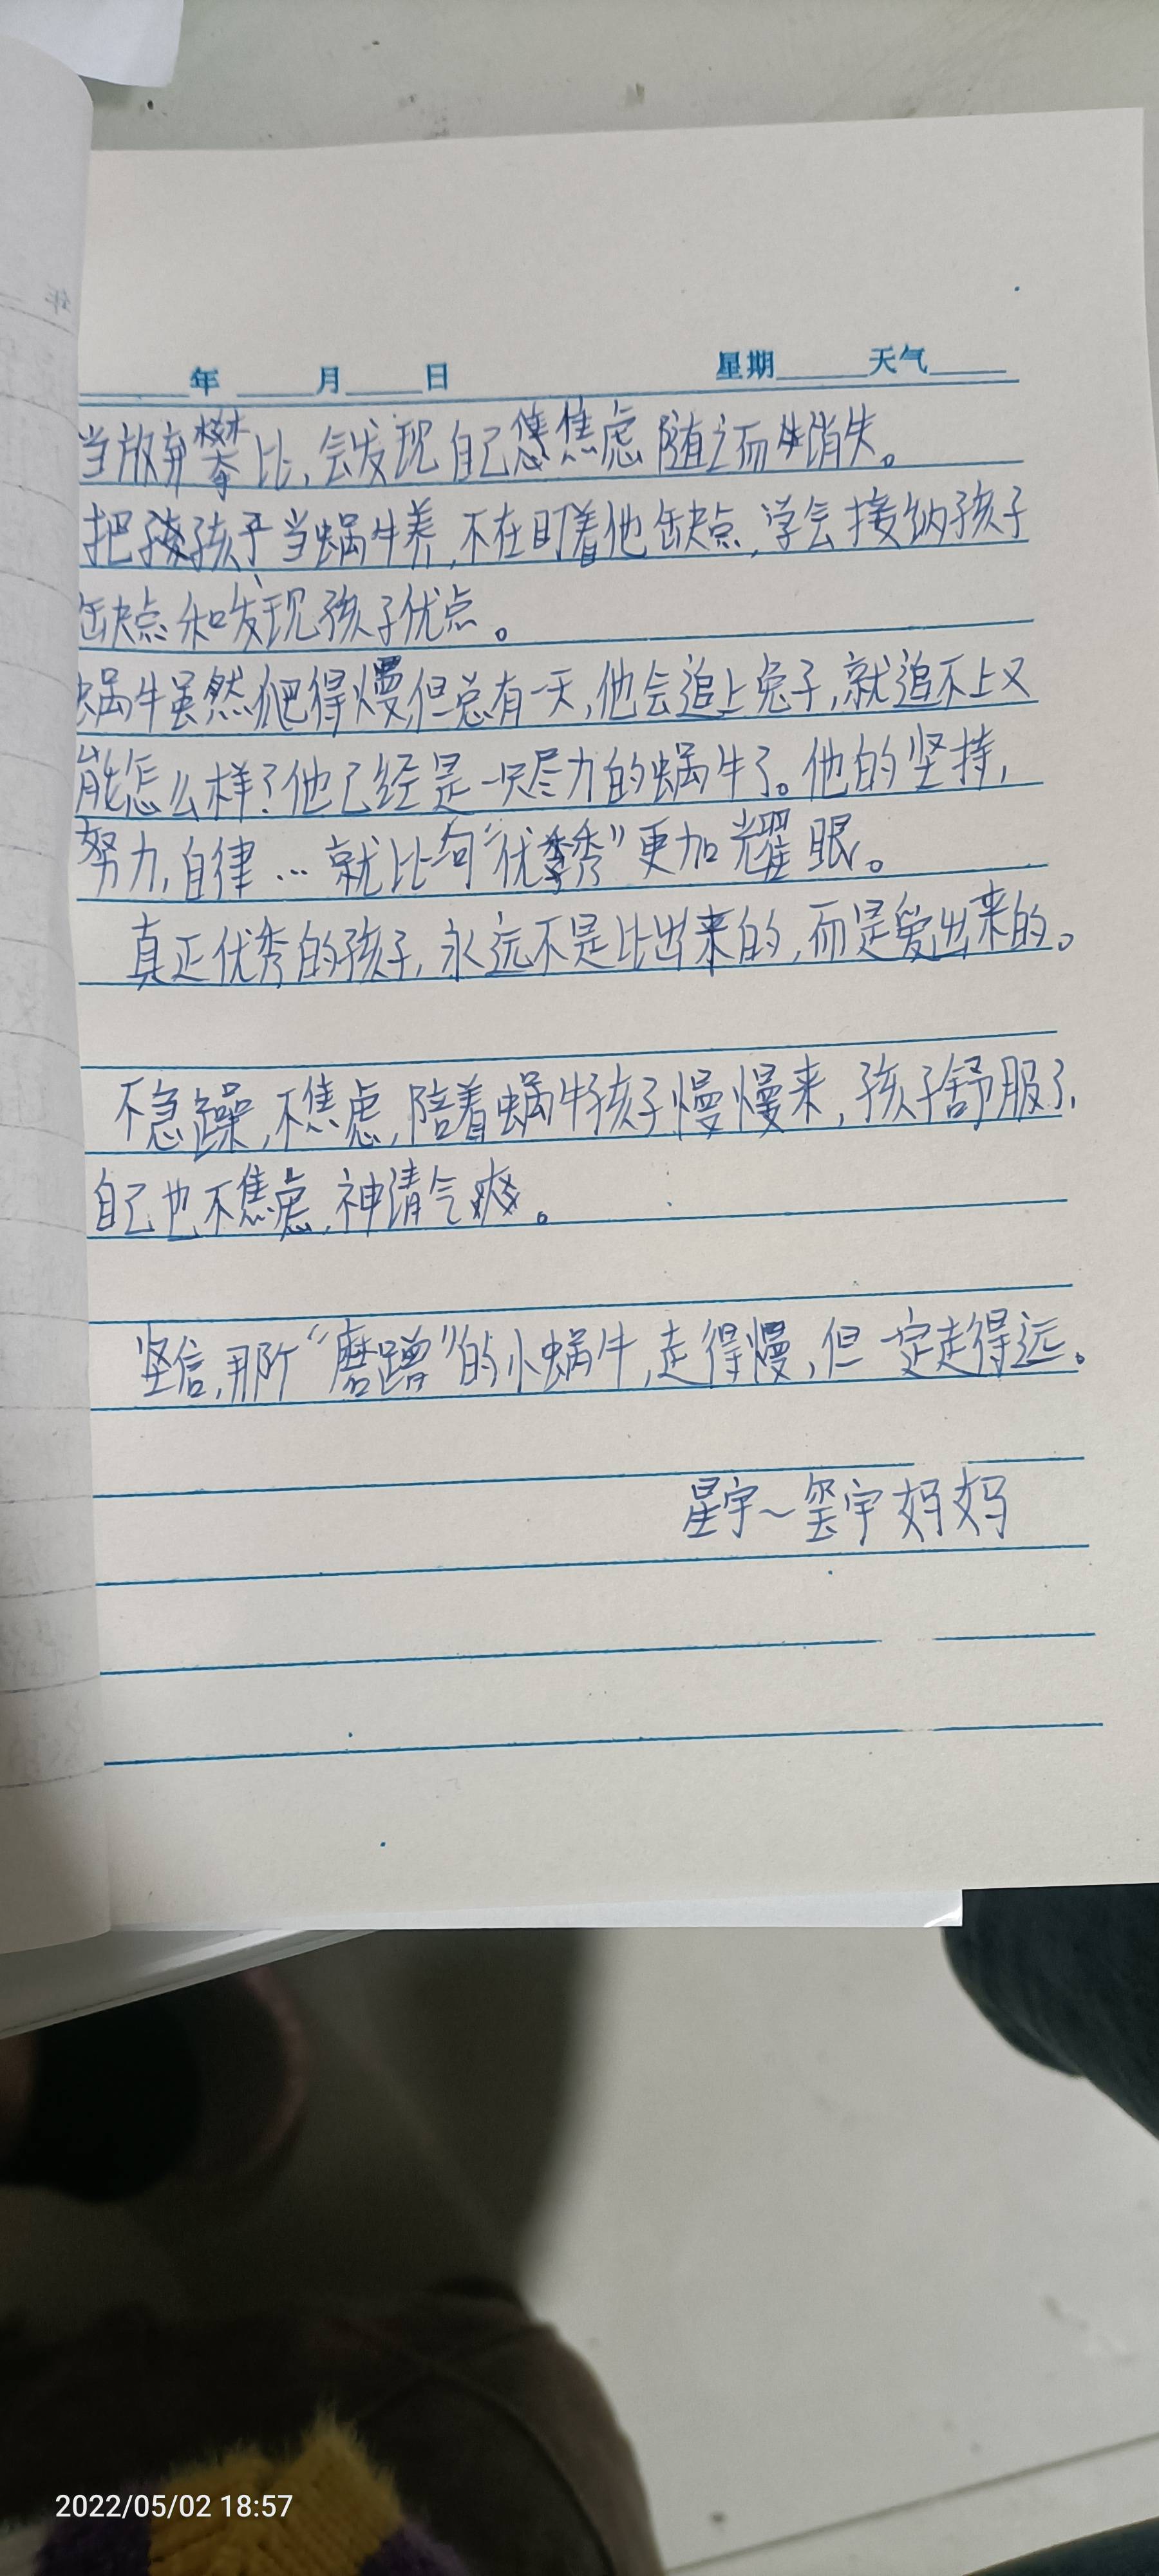 年 月 日 星期 天气
当放弃攀比,会发现自己焦虑随之而消失。
把孩子当蜗牛养,不在盯着他缺点,学会接纳孩子
缺点和发现孩子优点。
蜗牛虽然爬得慢,但总有一天,他会追上兔子,就追不上又
能怎么样?他已经是一只尽力的蜗牛了。他的坚持,
努力,自律…就比句“优秀”更加耀眼。
真正优秀的孩子,永远不是比出来的,而是爱出来的。
不急躁,不焦虑,陪着蜗牛孩子慢慢来,孩子舒服了,
自己也不焦虑,神清气爽。
坚信,那个“磨蹭”的小蜗牛,走得慢,但一定走得远。
星宇~玺宇妈妈
2022/05/02 18:57